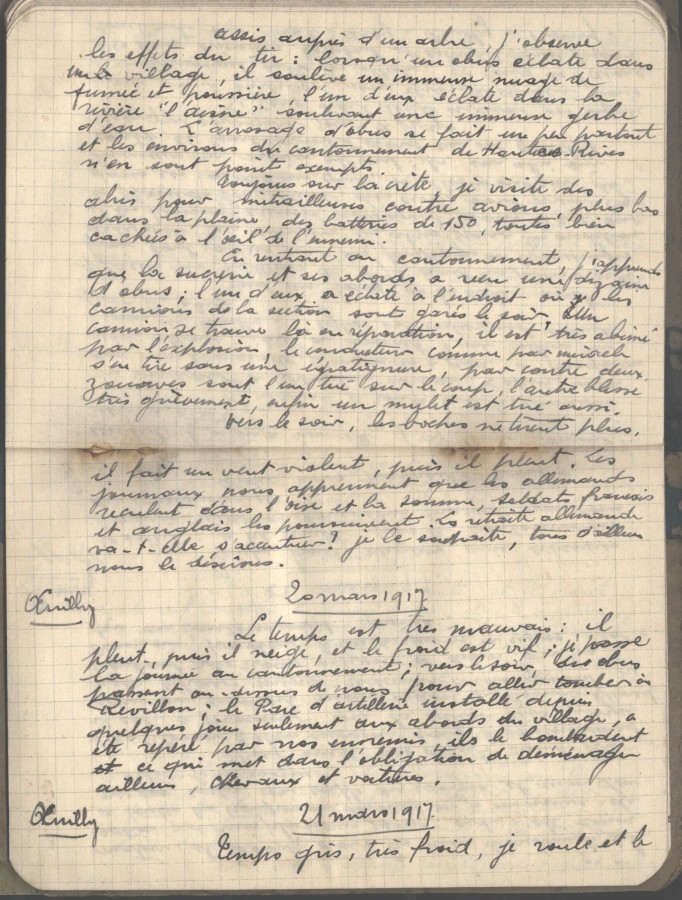 assis auprès d'un arbre, j'observe
les effets du tir : lorsqu'un obus éclate dans
un village, il soulève un immense nuage de
fumée et poussière, l'un d'eux éclate dans la
rivière "l'aisne" soulevant une immense gerbe
d'eau. L'arrosage d'obus se fait un peu partout
et les environs du cantonnement de Hautes-Rives
n'en sont point exempts.
Toujours sur la crête, je visite des
abris pour mitrailleuses contre avions, plus bas
dans la plaine, des batteries de 150, toutes bien
cachées à l'œil de l'ennemi.
En rentrant au cantonnement, j'apprends
que la sucrerie et ses abords a reçu une dizaine
d'obus ; l'un d'eux, a éclaté à l'endroit où les
camions de la section sont garés le soir. Un
camion se trouve là en réparation, il est très abimé
par l'explosion, le conducteur comme par miracle
s'en tire sans une égratignure, par contre deux
zouaves sont l'un tué sur le coup, l'autre blessé
très grièvement, enfin un mulet est tué aussi.
Vers le soir, les boches ne tirent plus,
il fait un vent violent, puis il pleut. Les
journaux nous apprennent que les allemands
reculent dans l'oise et la somme, soldats français
et anglais les poursuivent. La retraite allemande
va-t-elle s'accentuer? je le souhaite, tous d'ailleurs
nous le désirons.
Œuilly
20 mars 1917
Le temps est très mauvais : il
pleut, puis il neige, et le froid est vif ; je passe
la journée au cantonnement ; vers le soir, des obus
passent au-dessus de nous pour aller tomber à
Révillon ; le Parc d'artillerie installé depuis
quelques jours seulement aux abords du village, a
été repéré par nos ennemis, ils le bombardent
et ce qui met dans l'obligation de déménager
ailleurs, chevaux et voitures.
Œuilly
21 mars 1917
Temps gris, très froid, je roule et le